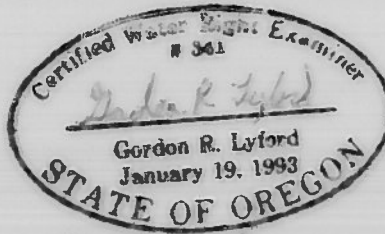 Certified Water Right Examiner
# 361
Gordon R. Lyford
Gordon R. Lyford
January 19, 1993
STATE OF OREGON